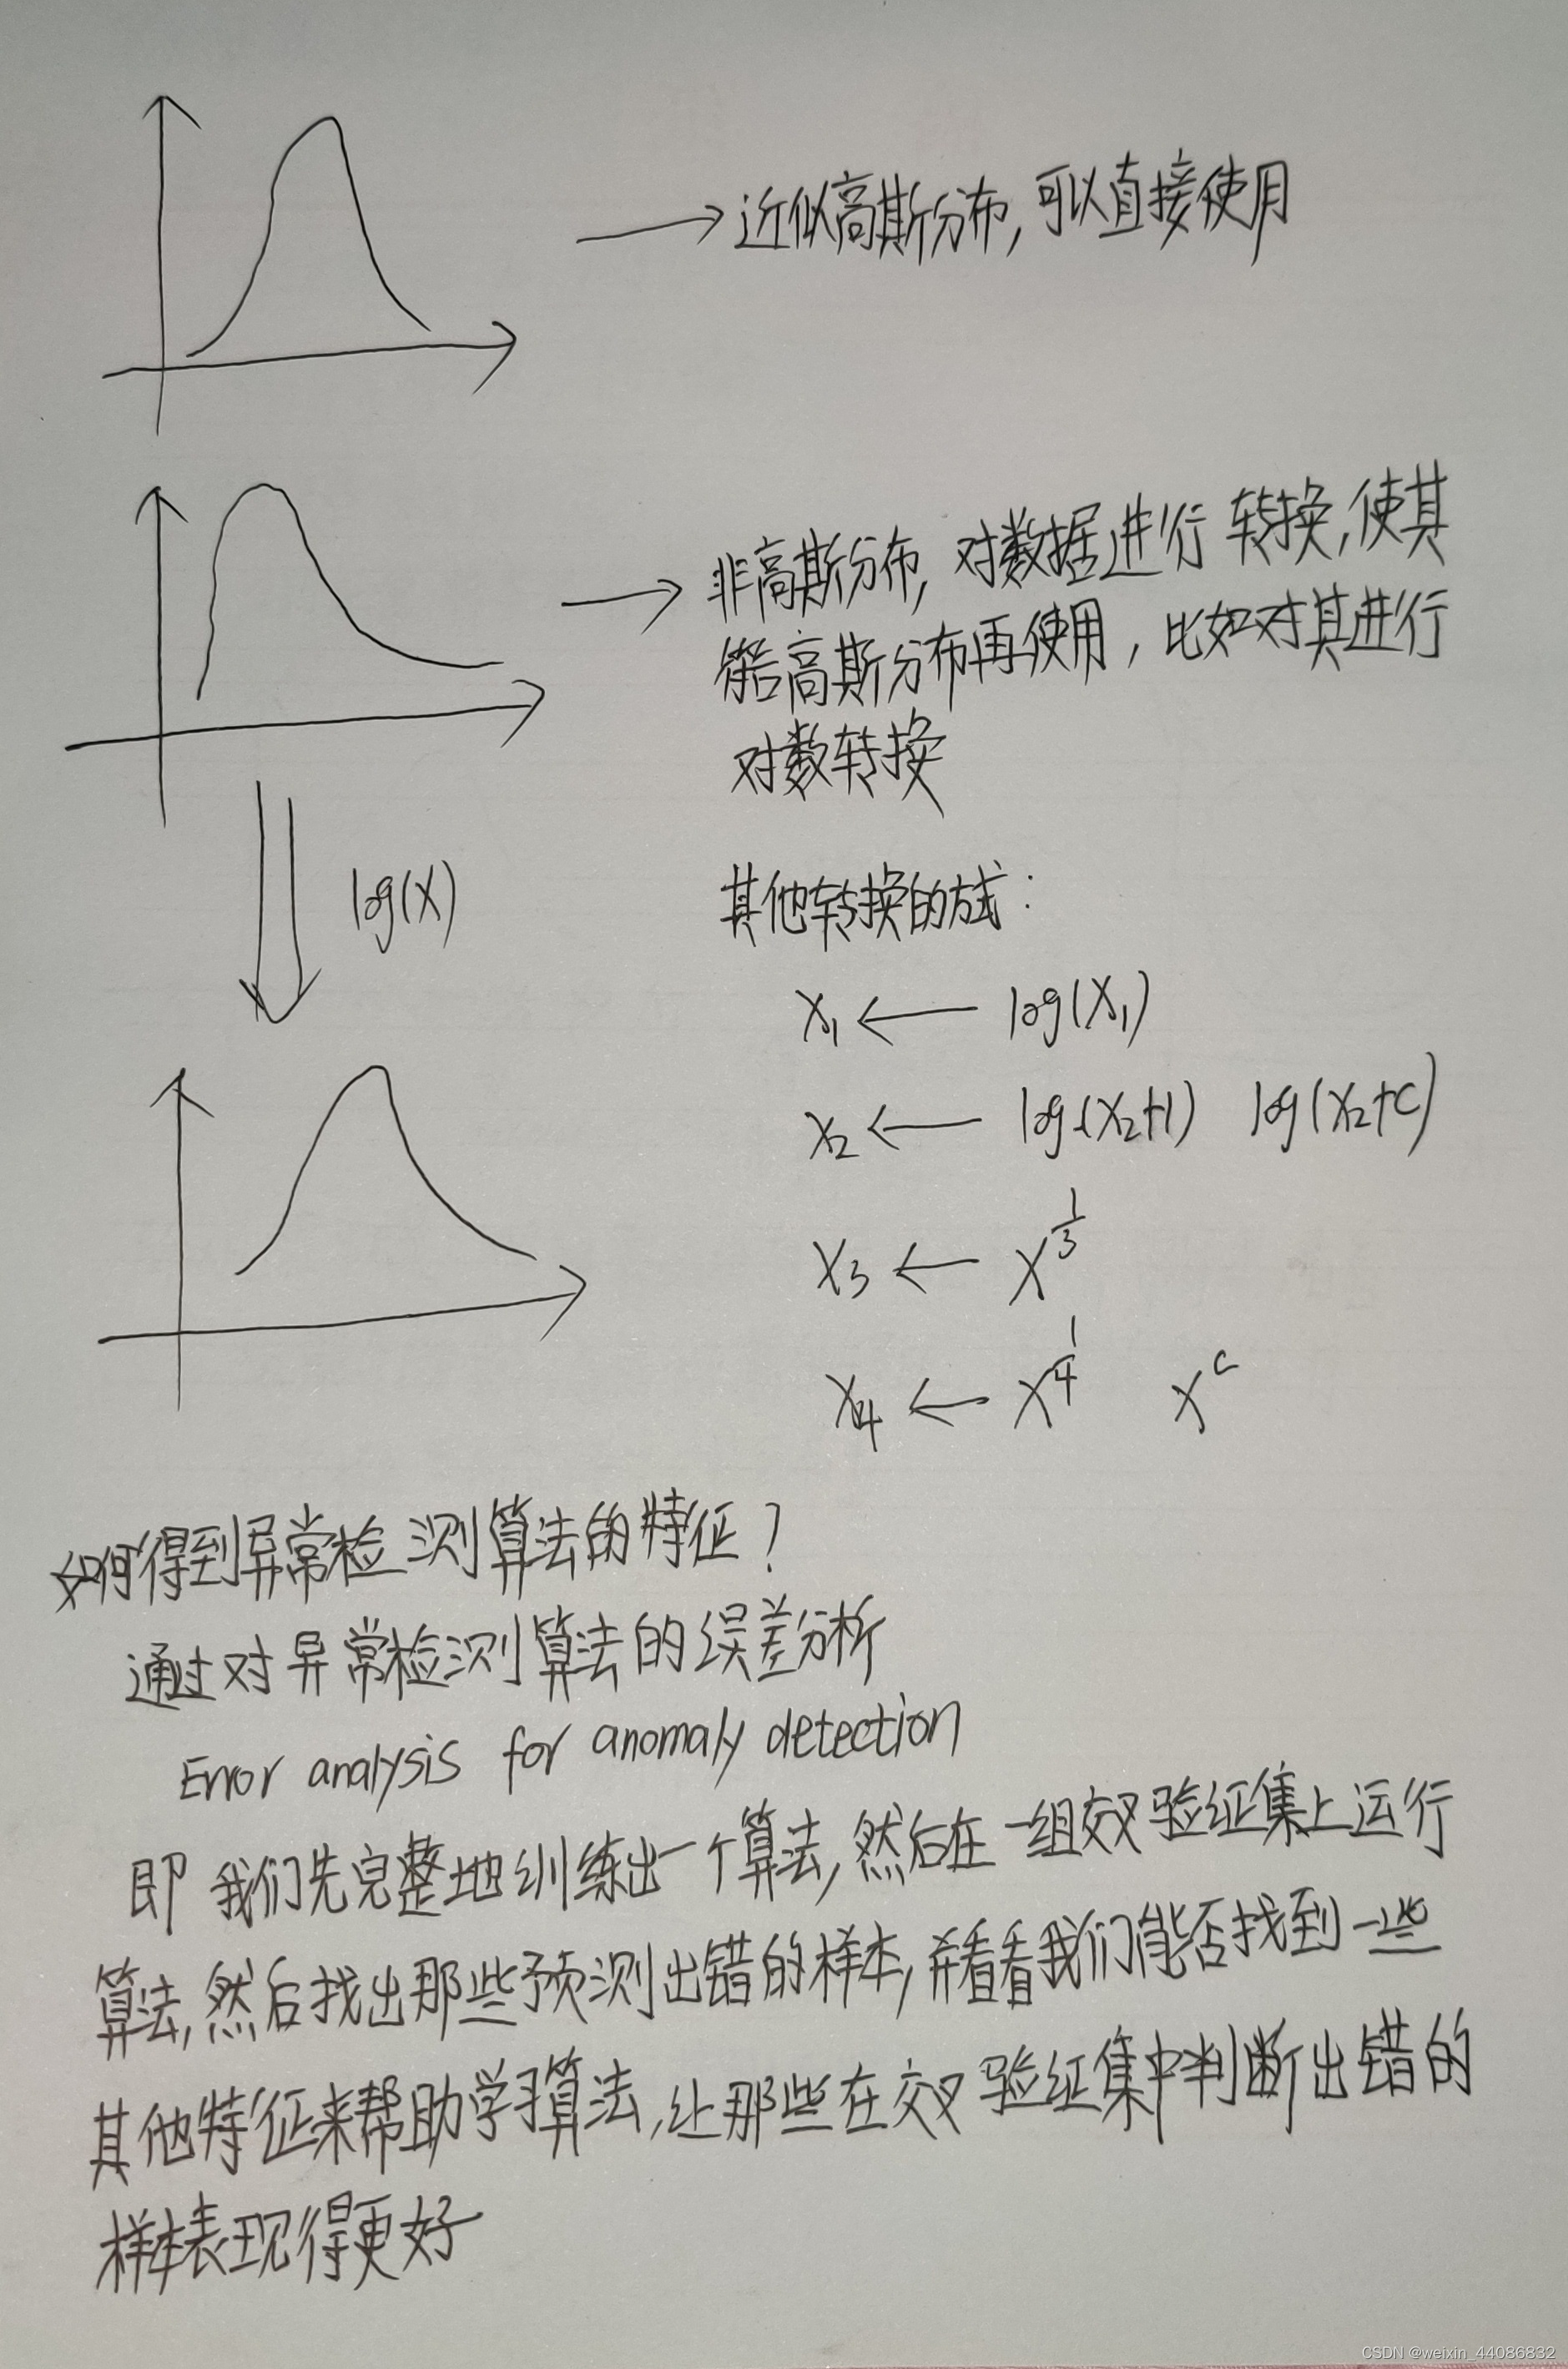 近似高斯分布,可以直接使用
非高斯分布,对数据进行转换,使其
符合高斯分布再使用,比如对其进行
对数转换
log(X)
其他转换的方式:
X₁ ← log(X₁)
X₂ ← log(X₂+1) log(X₂+C)
X₃ ← X^{1/3}
X₄ ← X^{1/4} X^c
如何得到异常检测算法的特征?
通过对异常检测算法的误差分析
Error analysis for anomaly detection
即我们先完整地训练出一个算法,然后在一组交叉验证集上运行
算法,然后找出那些预测出错的样本,并看看我们能否找到一些
其他特征来帮助学习算法,让那些在交叉验证集中判断出错的
样本表现得更好
CSDN @weixin_44086832